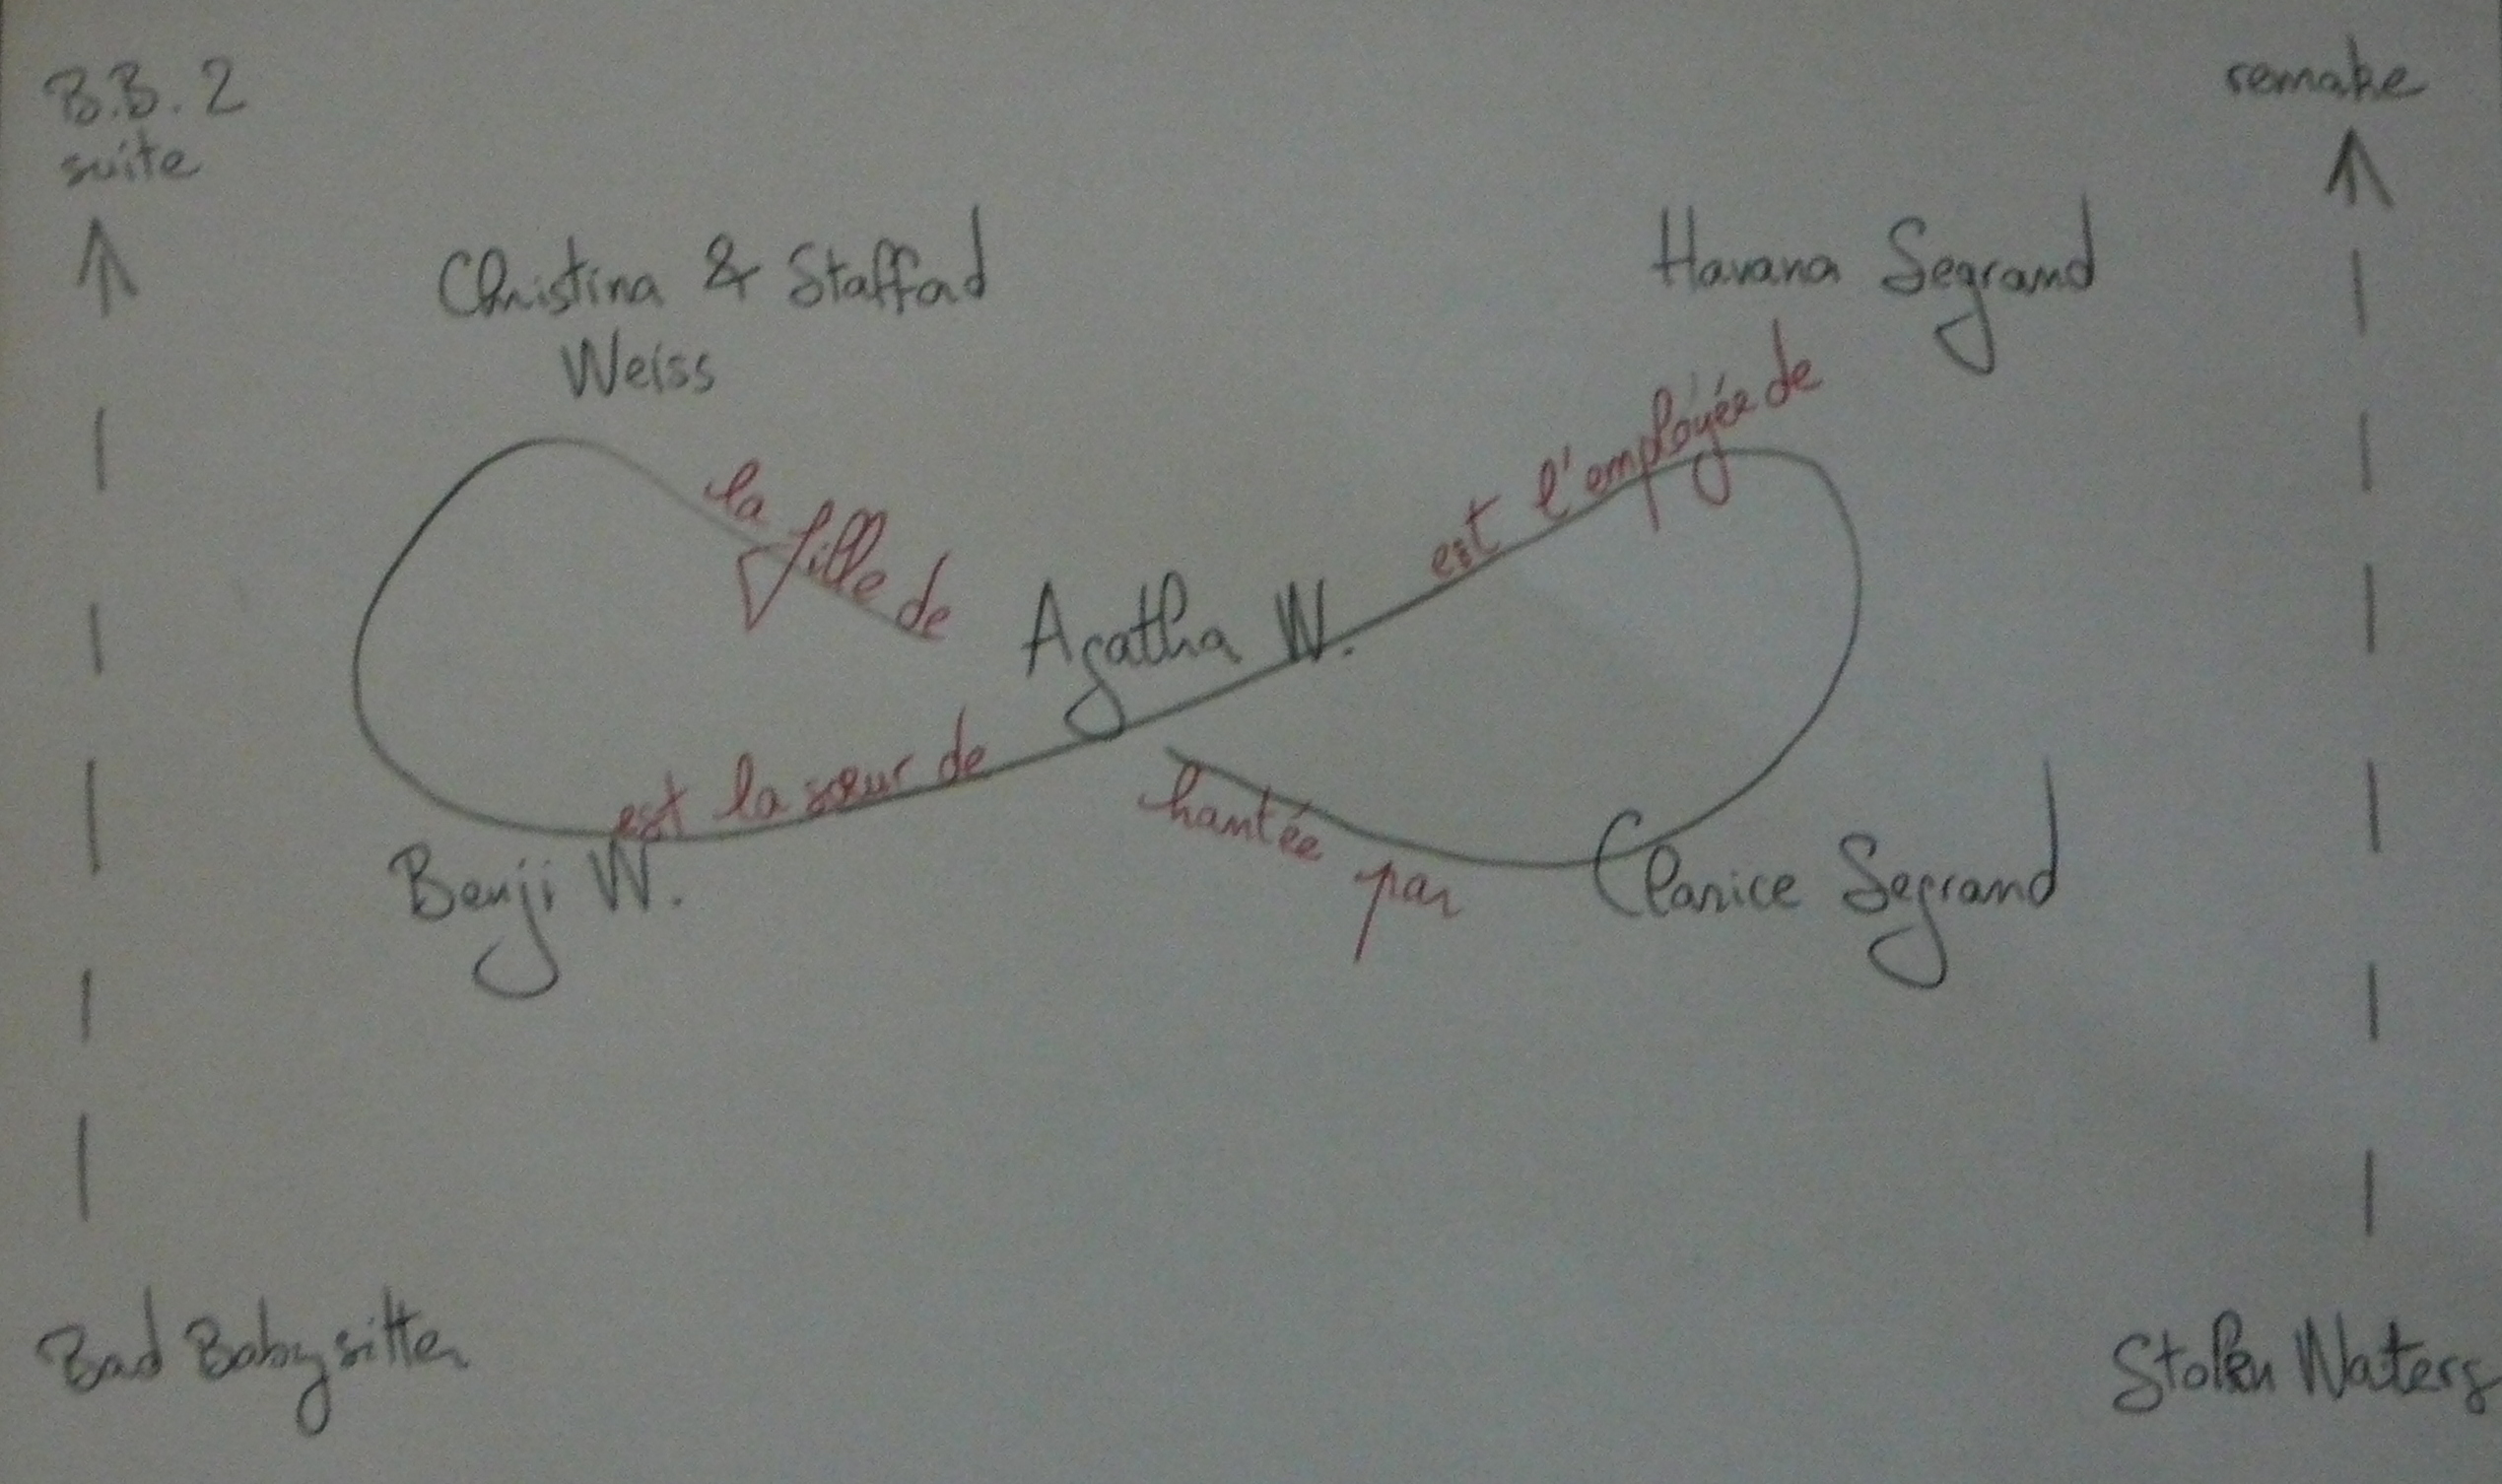 B.B. 2
suite
remake
Christina & Staffod
Weiss
Havana Segrand
la fille de
est l'employée de
Agatha W.
est la sœur de
hantée par
Benji W.
Clarice Segrand
Bad Babysitter
Stolen Waters